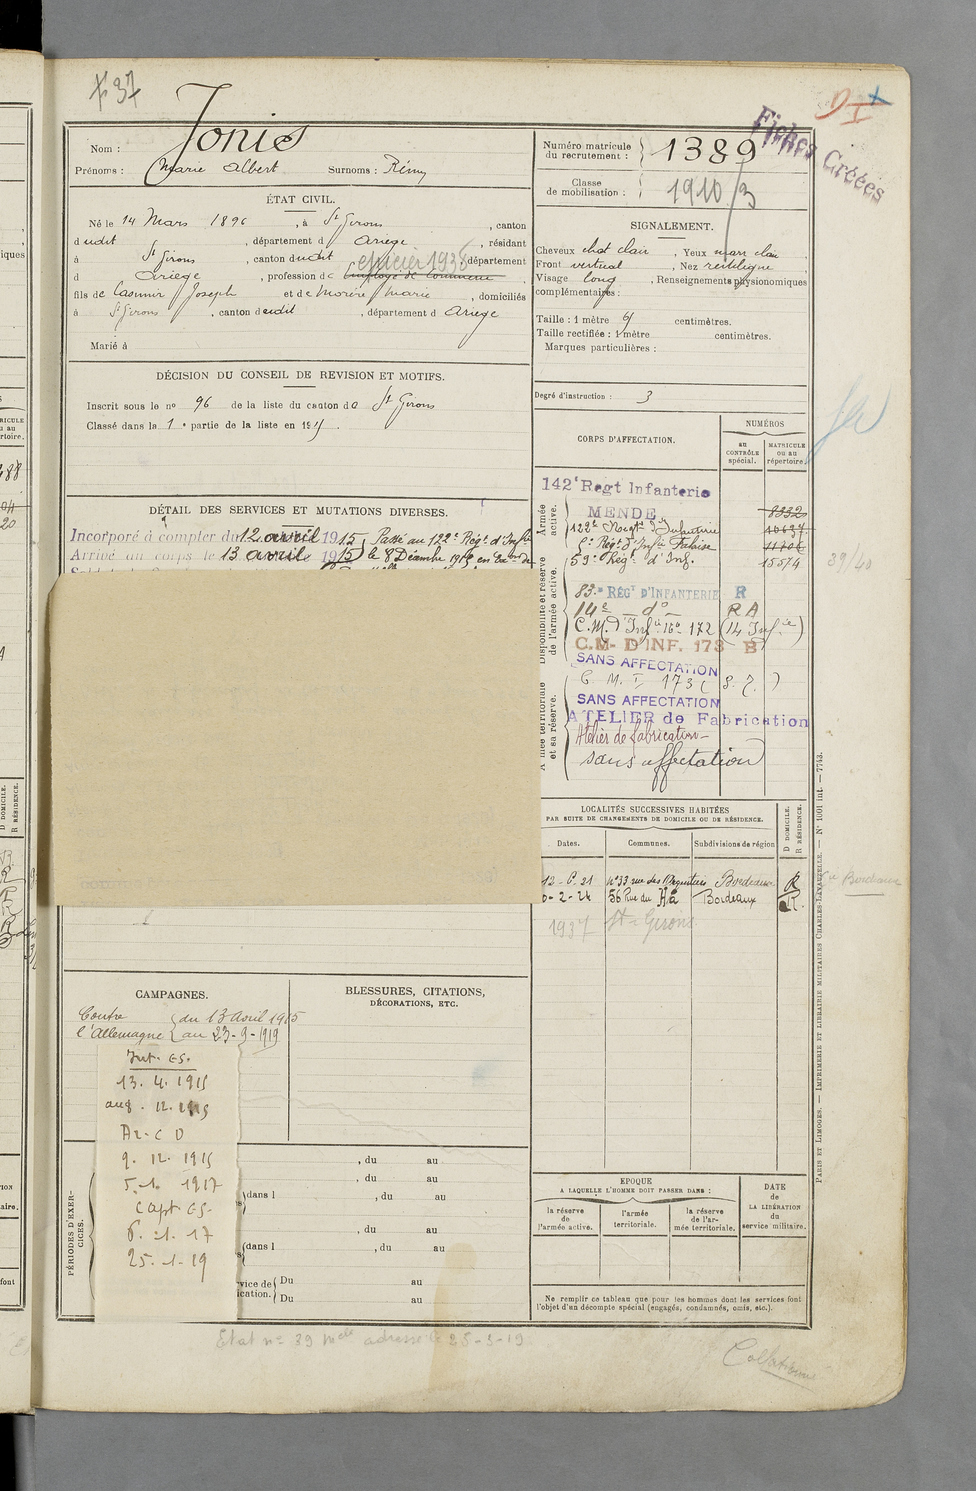 Jonis
Nom :
Prénoms : Marie Albert Surnoms : Rémy
Numéro matricule du recrutement : 1389
Classe de mobilisation : 1910/3
Fiches Créées
ÉTAT CIVIL.
Né le 14 Mars 1896, à St Girons, canton
dudit, département d Ariege, résidant
à St Girons, canton dudit, département
épicier 1938
d Ariège, profession de employé de commerce,
fils de Casimir Joseph et de Morère Marie, domiciliés
à St Girons, canton dudit, département d Ariege
Marié à
SIGNALEMENT.
Cheveux chat clair, Yeux marr clair
Front vertical, Nez rectiligne
Visage long, Renseignements physionomiques
complémentaires :
Taille : 1 mètre 61 centimètres.
Taille rectifiée : 1 mètre centimètres.
Marques particulières :
Degré d'instruction : 3
DÉCISION DU CONSEIL DE REVISION ET MOTIFS.
Inscrit sous le no 96 de la liste du canton de St Girons
Classé dans la 1e partie de la liste en 1915.
DÉTAIL DES SERVICES ET MUTATIONS DIVERSES.
Incorporé à compter du 12 avril 1915 Passé au 122e Régt d'Inftie
Arrivé au corps le 13 avril 1915 le 8 Décembre 1915 en
CORPS D'AFFECTATION.
NUMÉROS
au CONTRÔLE spécial.
MATRICULE ou au répertoire.
Armée active.
Disponibilité et réserve de l'armée active.
Armée territoriale et sa réserve.
142e Regt Infanterie
MENDE 8332
122e Regt d'Infanterie 10637
Régt d'Infie Falaise 11706
59e Régt d'Inf. 15574
39/40
83e REGT D'INFANTERIE R
14e do R A
C.M. d'Infie 16e 172 (14 Infie)
C.M. D'INF. 173 B
SANS AFFECTATION
C M. I. 173 (S. 7. )
SANS AFFECTATION
ATELIER de Fabrication
Atelier de fabrication
sans affectation
LOCALITÉS SUCCESSIVES HABITÉES
PAR SUITE DE CHANGEMENTS DE DOMICILE OU DE RÉSIDENCE.
Dates. Communes. Subdivisions de région
D DOMICILE. R RÉSIDENCE.
no 33 rue des Bordeaux R
56 Rue du Hâ Bordeaux R
1937 St Girons
CAMPAGNES.
Contre l'Allemagne
du 13 avril 1915
au 23-9-1919
BLESSURES, CITATIONS,
DÉCORATIONS, ETC.
Int. CS.
13. 4. 1915
au 8. 12. 1915
Az. C D
9. 12. 1915
5. 1. 1917
Capt CS.
6. 1. 17
25. 1. 19
PÉRIODES D'EXERCICES.
, du au
, du au
(dans l , du au
, du au
(dans l , du au
Du au
Du au
EPOQUE
A LAQUELLE L'HOMME DOIT PASSER DANS :
la réserve de l'armée active.
l'armée territoriale.
la réserve de l'armée territoriale.
DATE de LA LIBÉRATION du service militaire.
Ne remplir ce tableau que pour les hommes dont les services font
l'objet d'un décompte spécial (engagés, condamnés, omis, etc.).
PARIS ET LIMOGES. — IMPRIMERIE ET LIBRAIRIE MILITAIRES CHARLES-LAVAUZELLE. — No 1001 int. — 7743.
Etat no 39 adressé le 28-3-19
Collationné